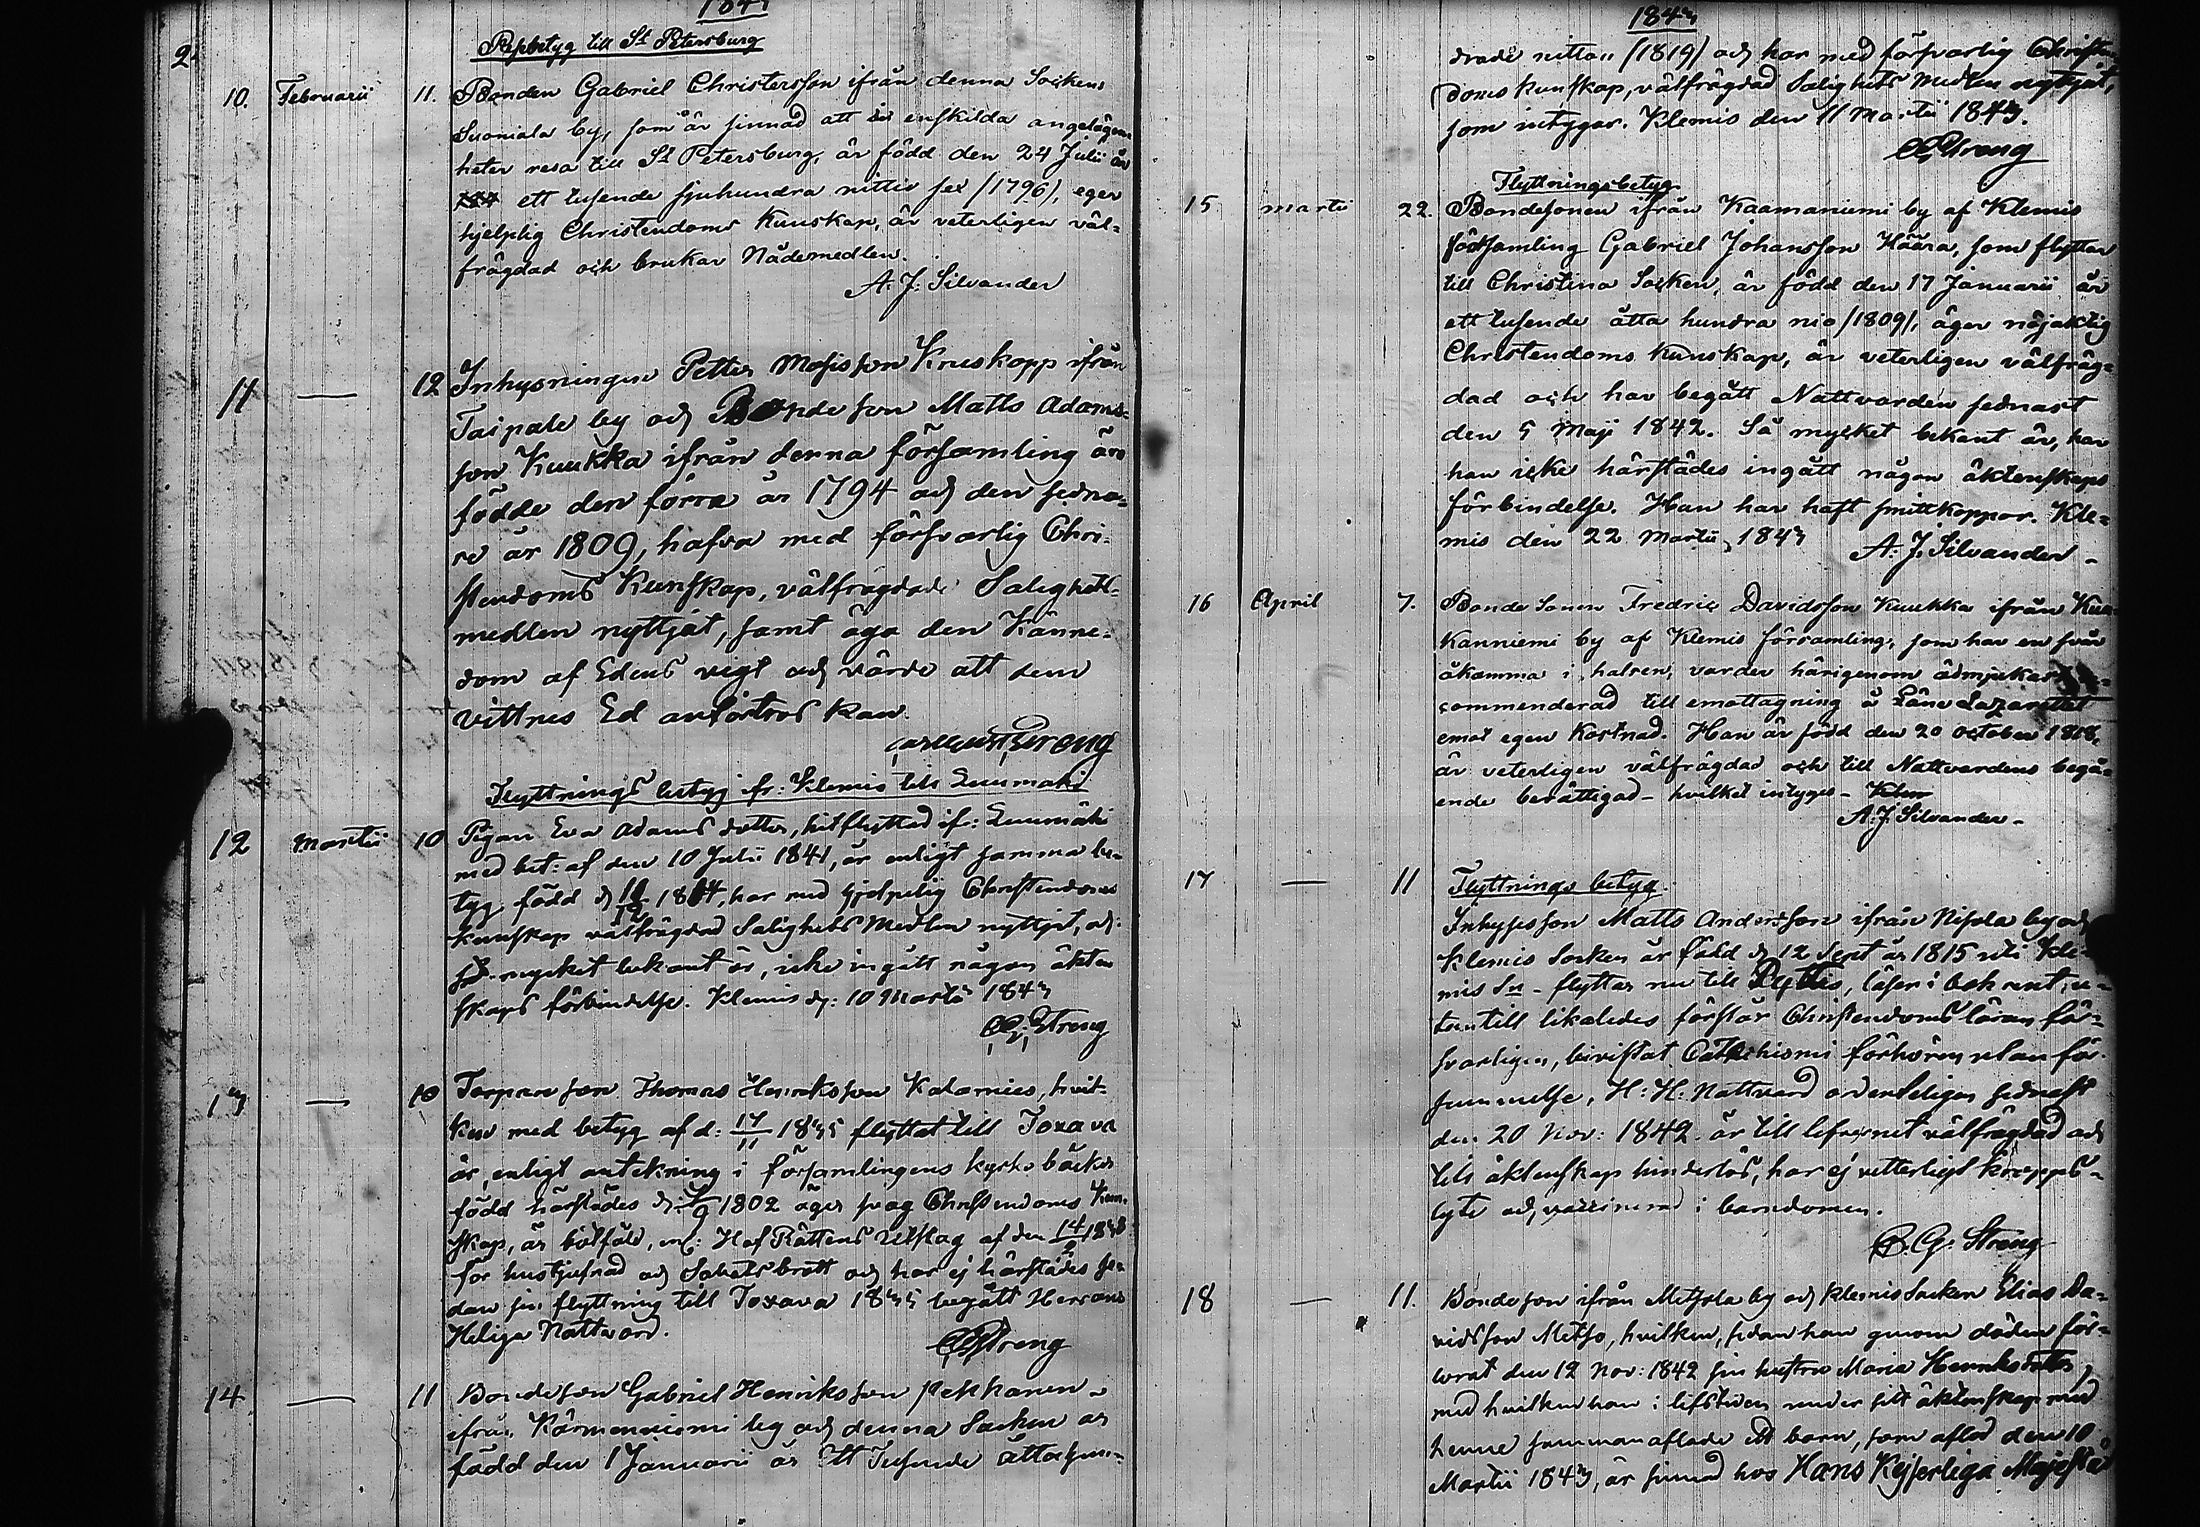 2.
184
Repbetyg till St Petersburg
10. Februarii 11. Bonden Gabriel Christersson ifrån denna Sockens
Suoniala by, som är sinnad att i enskilda angelägen
heter resa till St Petersburg, är född den 24 Julii år
ett tusende sjuhundra nittio sex /1796/, eger
hjelplig Christendoms Kunskap, är veterligen väl=
frägdad och brukar Nådemedlen.
A. J. Silvander
11 — 12 Inhysningen Petter Mosisson Kruskopp ifrån
Taipale by och Bondeson Matts Adams=
son Kuukka ifrån denna församling äro
födde den förra år 1794 och den sedna=
re år 1809, hafva med försvarlig Chri=
stendoms Kunskap, välfrägdade Salighets=
medlen nyttjat, samt äga den Känne=
dom af Edens vigt och värde att dem
vittnes Ed anförtros kan.
Streng
Flyttnings betyg ifr: Klemis till Luumäki
12 Martii 10 Pigan Eva Adams dotter, hitflyttad if: Luumäki
med bet: af den 10 Julii 1841, är enligt samma be=
tyg född d 10/12 18 4, har med hjelpelig Christendoms
kunskap välfrägdad Salighets Medlen nyttjat, och
så mycket bekant är, icke ingått någon äkten
skaps förbindelse. Klemis d: 10 Martii 1843
C. G. Streng
13 — 10 Torpare son Thomas Henriksson Kalarnies, hvil=
ken med betyg af d: 17/11 1835 flyttat till Toxava
är, enligt antekning i församlingens kyrko böcker
född härstädes d: /9 1802 äger svag Christendoms Kun=
skap, är bötfäld, enl: Hof Rättens Utslag af den 14/2 18
för hustjufnad och Sabats brott och har ej härstädes se=
dan sin flyttning till Toxava 1835 begått Herrans
Heliga Nattvard.
C G Streng
14 — 11 Bondeson Gabriel Henriksson Pekkanen
ifrån Kärmeniemi by och denna Socken är
född den 1 Januarii år Ett Tusende åttahun=
1843
drade nitton /1819/ och har med försvarlig Christen
doms kunskap, välfrägdad Salighets Medlen nyttjat,
som intygar. Klemis den 11 Martii 1843.
C G Streng
Flyttningsbetyg
15 Martii 22. Bondesonen ifrån Kaamaniemi by af Klemis
församling Gabriel Johansson Häära, som flyttar
till Christina Socken, är född den 17 Januarii år
ett tusende åtta hundra nio /1809/, äger nöjaktig
Christendoms kunskap, är veterligen välfräg=
dad och har begått Nattvarden sednast
den 5 Maji 1842. Så mycket bekant är, har
han icke härstädes ingått någon äktenskaps
förbindelse. Han har haft smittkoppor. Kle=
mis den 22 Martii 1843 A. J. Silvander
16 April 7. Bonde Sonen Fredric Davidsson Kuukka ifrån Kuu
Kanniemi by af Klemis församling, som har en svår
åkomma i halsen, varder härigenom ödmjukast
commenderad till emottagning å Läns Lazarettet
emot egen kostnad. Han är född den 20 October 1818,
är veterligen välfrägdad och till Nattvardens begå=
ende berättigad - hvilket intygas -
A. J. Silvander
17 — 11 Flyttnings betyg.
Inhysesson Matts Andersson ifrån Nisola by och
Klemis Socken är född d 12 Sept år 1815 uti Kle=
mis Sn - flyttar nu till Pyttis, läser i bok rent, u=
tantill likaledes förstår Christendoms läran för=
svarligen, bivistat Catechismi förhören utan för=
summelse, H: H: Nattvard ordenteligen sednast
den 20 Nov: 1842. är till lefvernet välfrägdad och
till äktenskap hinderlös, har ej vetterligt kropps=
lyte och vaccinerad i barndomen.
C. G. Streng
18 — 11. Bondeson ifrån Metsola by och Klemis Socken Elias Da=
vidsson Metso, hvilken, sedan han genom döden för=
lorat den 12 Nov: 1842 sin hustru Maria Henriksdotter,
med hvilken han i lifstiden under sitt äktenskap med
henne sammanaflade ett barn, som aflod den 10
Martii 1843, är sinnad hos Hans Kejserliga Majestät